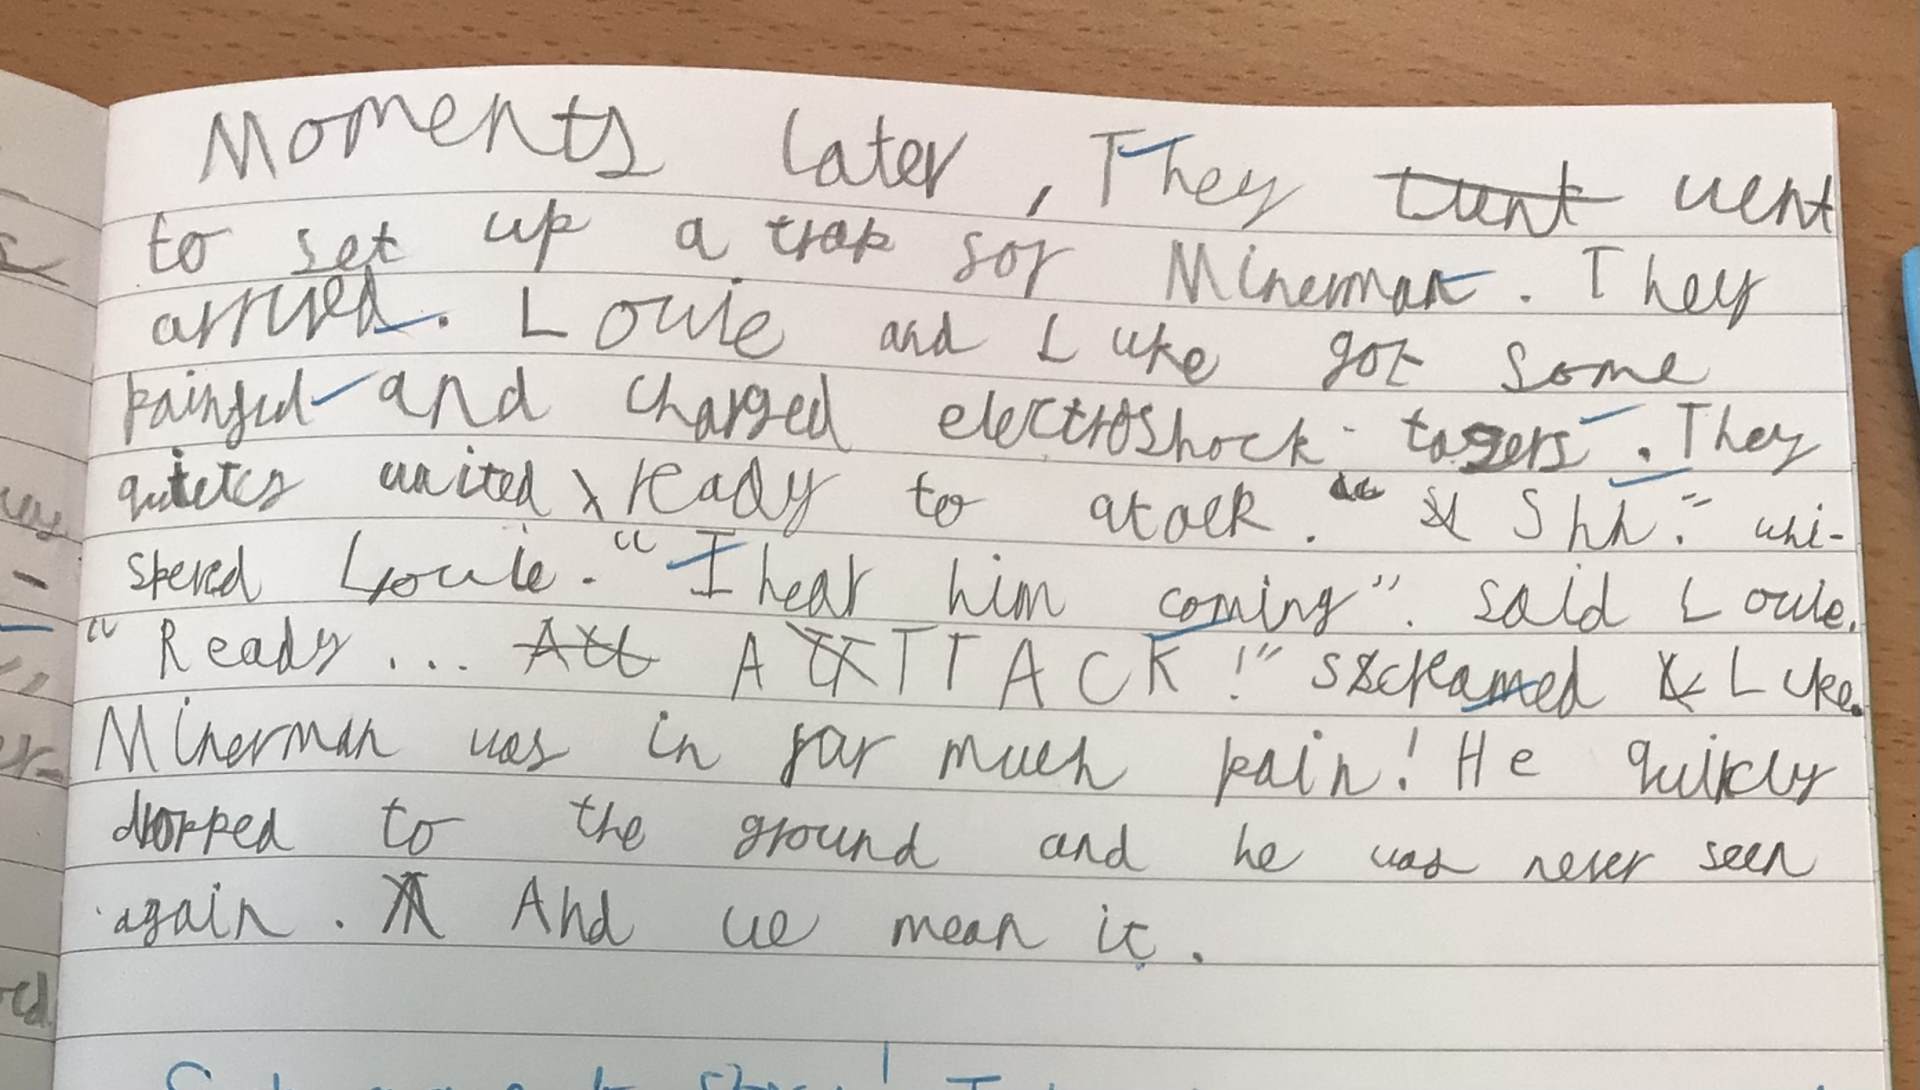 Moments later, They went
to set up a trap for Minerman. They
arrived. Louie and Luke got some
painful and charged electroshock tasers. They
quietly waited, ready to atack. "Shh." whi-
spered Louie. "I hear him coming". said Louie.
"Ready... ATTACK!" screamed Luke.
Minerman was in far much pain! He quikcly
dropped to the ground and he was never seen
again. And we mean it.